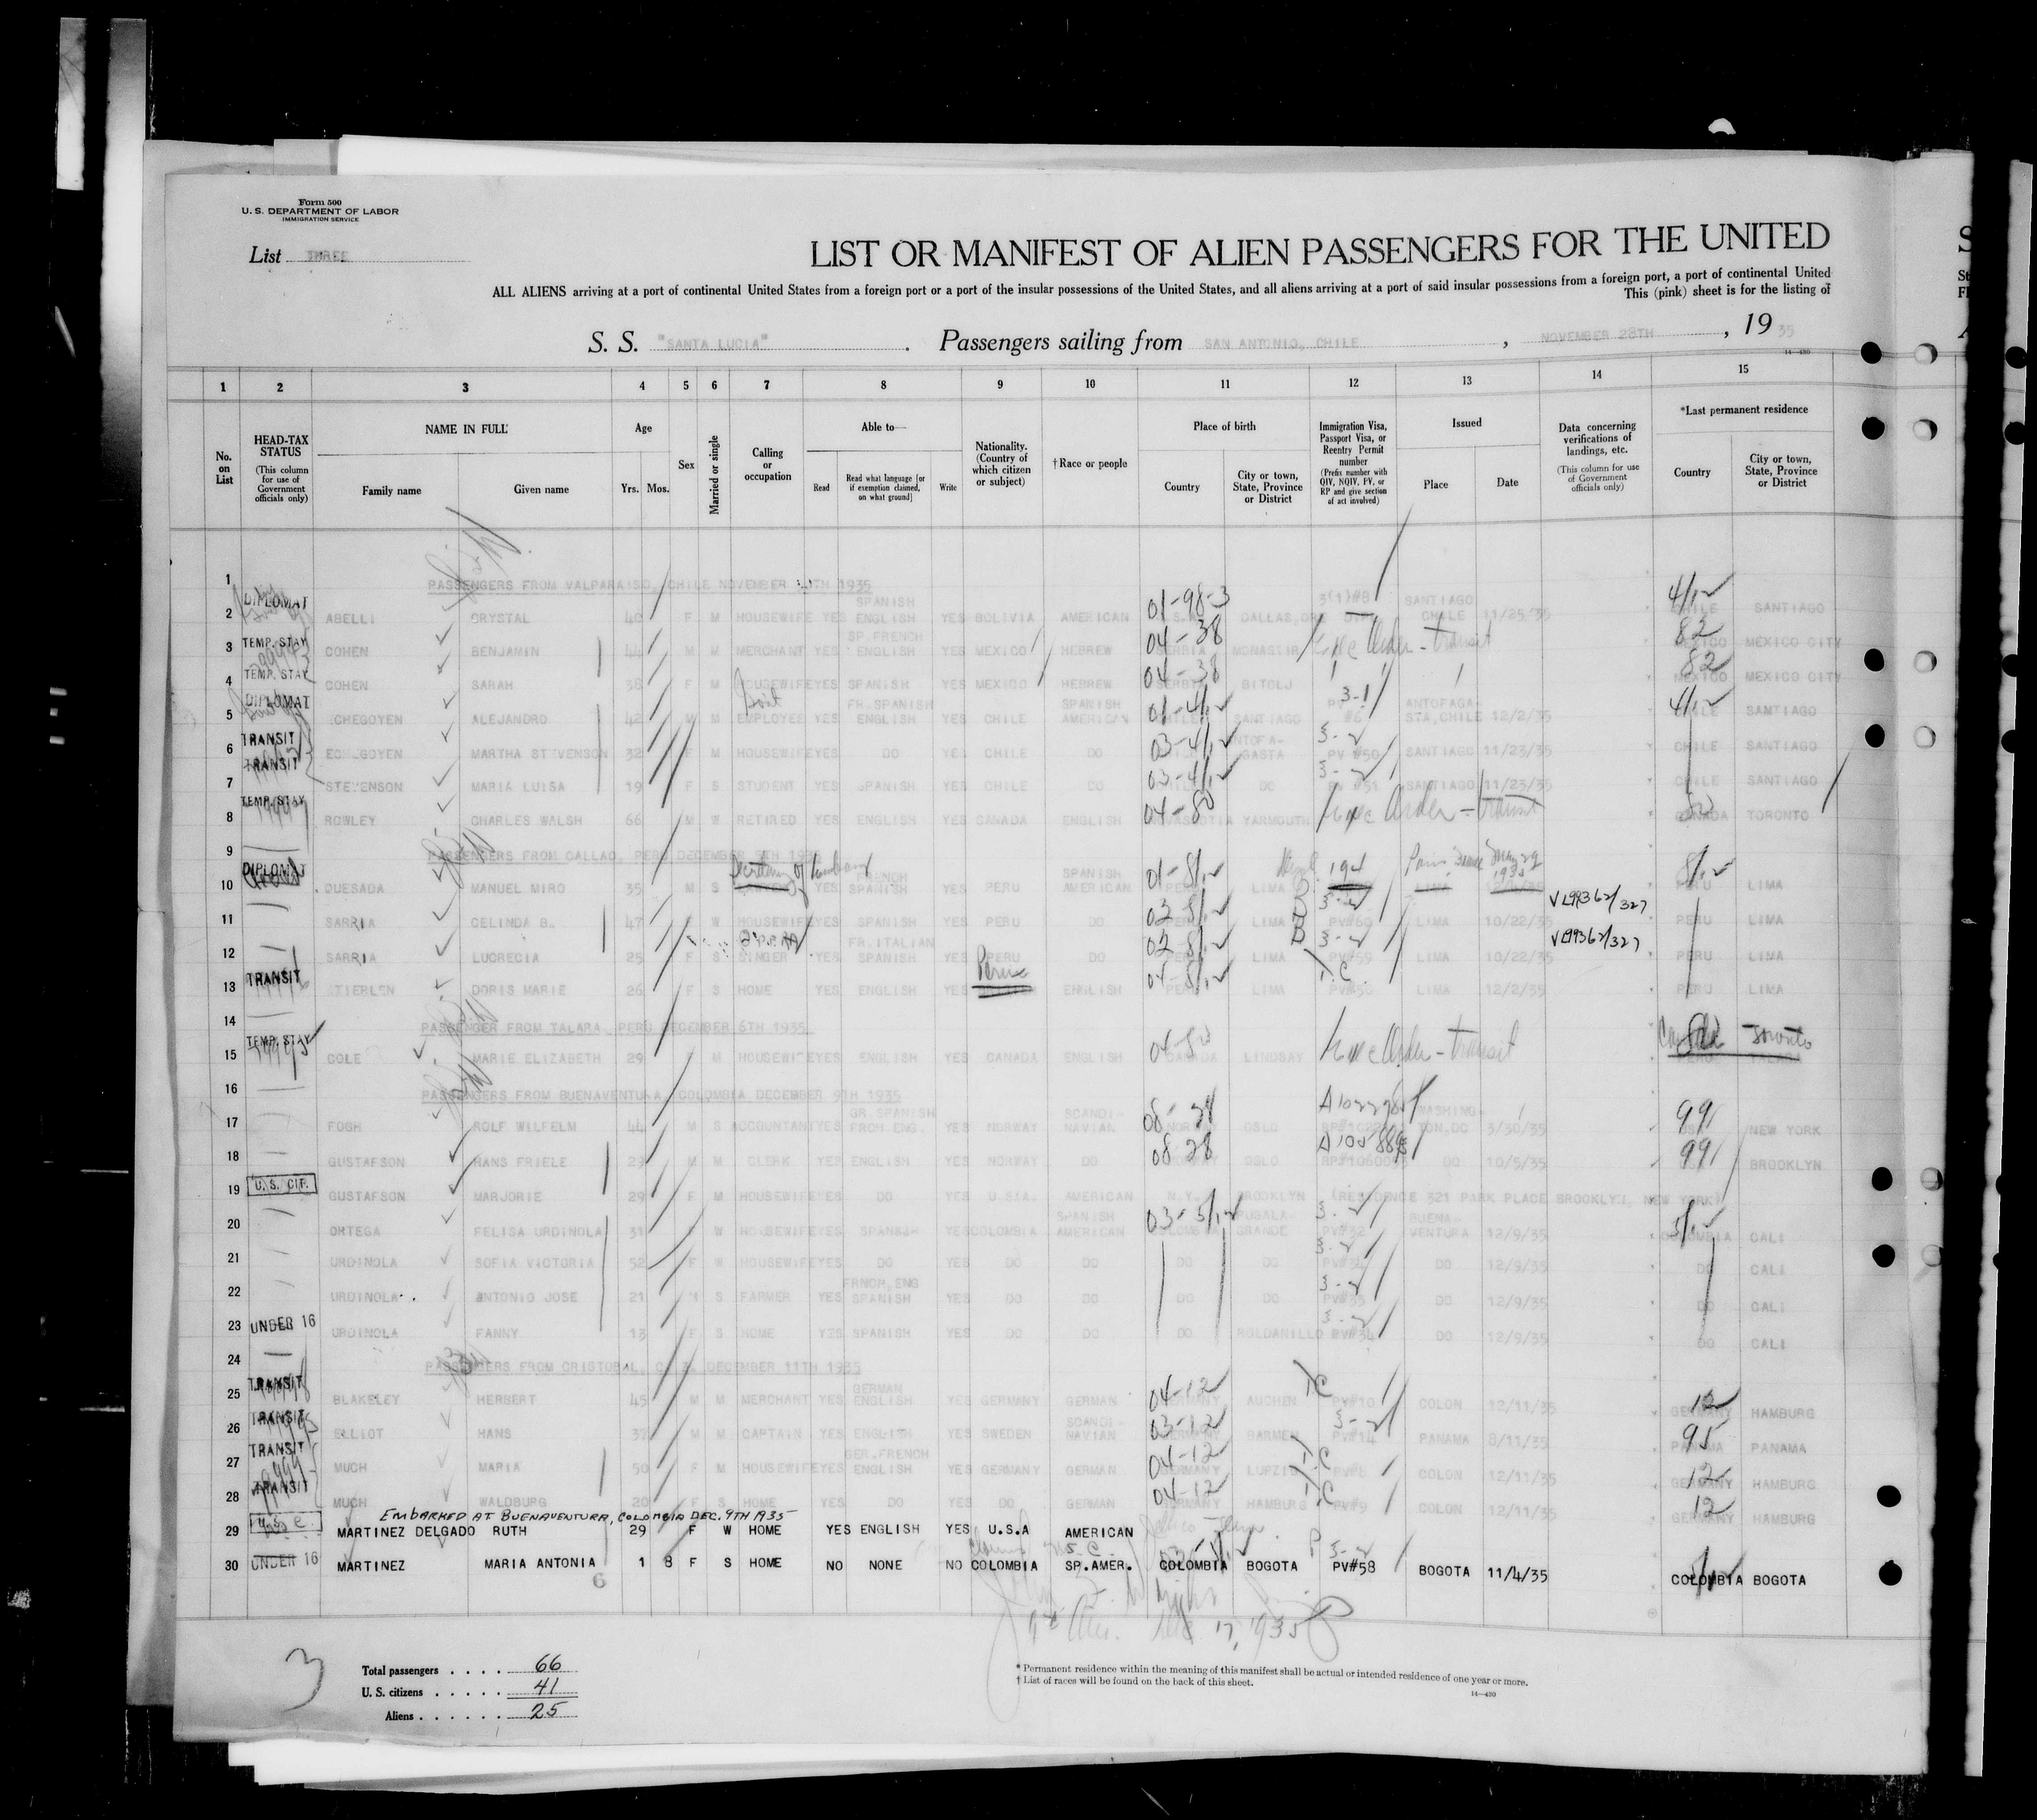 Form 500
U. S. DEPARTMENT OF LABOR
IMMIGRATION SERVICE
List THREE
LIST OR MANIFEST OF ALIEN PASSENGERS FOR THE UNITED
ALL ALIENS arriving at a port of continental United States from a foreign port or a port of the insular possessions of the United States, and all aliens arriving at a port of said insular possessions from a foreign port, a port of continental United
This (pink) sheet is for the listing of
S. S. "SANTA LUCIA" . Passengers sailing from SAN ANTONIO, CHILE , NOVEMBER 28TH , 19 35
14—430
1 2 3 4 5 6 7 8 9 10 11 12 13 14 15
No. on List
HEAD-TAX STATUS (This column for use of Government officials only)
NAME IN FULL
Family name Given name
Age
Yrs. Mos.
Sex
Married or single
Calling or occupation
Able to—
Read Read what language [or if exemption claimed, on what ground] Write
Nationality. (Country of which citizen or subject)
†Race or people
Place of birth
Country City or town, State, Province or District
Immigration Visa, Passport Visa, or Reentry Permit number (Prefix number with QIV, NQIV, PV, or RP and give section of act involved)
Issued
Place Date
Data concerning verifications of landings, etc. (This column for use of Government officials only)
*Last permanent residence
Country City or town, State, Province or District
1 PASSENGERS FROM VALPARAISO, CHILE NOVEMBER TH 1935
2 DIPLOMAT ABELLI CRYSTAL 40 F M HOUSEWIFE YES SPANISH ENGLISH YES BOLIVIA AMERICAN 01-98-3 DALLAS,ORE 3(1)#8 SANTIAGO CHILE 11/25/35 CHILE SANTIAGO
3 TEMP. STAY COHEN BENJAMIN 44 M M MERCHANT YES SP.FRENCH ENGLISH YES MEXICO HEBREW 04-38 SERBIA MONASTIR Order - transit 82 MEXICO MEXICO CITY
4 TEMP. STAY COHEN SARAH 38 F M HOUSEWIFE YES SPANISH YES MEXICO HEBREW 04-38 SERBIA BITOLJ 82 MEXICO MEXICO CITY
5 DIPLOMAT ECHEGOYEN ALEJANDRO 42 M M EMPLOYEE YES FR.SPANISH ENGLISH YES CHILE SPANISH AMERICAN CHILE SANTIAGO 3-1 #6 ANTOFAGA-STA,CHILE 12/2/35 CHILE SANTIAGO
6 TRANSIT MARTHA STEVENSON 32 F M HOUSEWIFE YES DO YES CHILE DO ANTOFA-GASTA 3-2 PV #50 SANTIAGO 11/23/35 CHILE SANTIAGO
7 TRANSIT STEVENSON MARIA LUISA 19 F S STUDENT YES SPANISH YES CHILE DO DO 3-2 PV #51 SANTIAGO 11/23/35 CHILE SANTIAGO
8 TEMP. STAY ROWLEY CHARLES WALSH 66 M W RETIRED YES ENGLISH YES CANADA ENGLISH 04-80 NOVASCOTIA YARMOUTH Order - transit 80 CANADA TORONTO
9 PASSENGERS FROM CALLAO, PERU DECEMBER 5TH 1935
10 DIPLOMAT QUESADA MANUEL MIRO 35 M S Secretary of YES FRENCH SPANISH YES PERU SPANISH AMERICAN PERU LIMA 194 Paris France 1935 PERU LIMA
11 SARRIA CELINDA B. 47 F W HOUSEWIFE YES SPANISH YES PERU DO PERU LIMA 3-2 PV#60 LIMA 10/22/35 VL99362/327 PERU LIMA
12 SARRIA LUCRECIA 25 F S OPERA SINGER YES FR.ITALIAN SPANISH YES PERU DO PERU LIMA 3-2 PV#59 LIMA 10/22/35 VL99362/327 PERU LIMA
13 TRANSIT STIERLEN DORIS MARIE 26 F S HOME YES ENGLISH YES Peru ENGLISH PERU LIMA LIMA 12/2/35 PERU LIMA
14 PASSENGER FROM TALARA, PERU DECEMBER 6TH 1935
15 TEMP. STAY COLE MARIE ELIZABETH 29 F M HOUSEWIFE YES ENGLISH YES CANADA ENGLISH 04-80 CANADA LINDSAY Order - transit Canada Toronto PERU TALARA
16 PASSENGERS FROM BUENAVENTURA, COLOMBIA DECEMBER 9TH 1935
17 FOGH ROLF WILFELM 44 M S ACCOUNTANT YES GR.SPANISH FRCH.ENG. YES NORWAY SCANDI-NAVIAN NORWAY OSLO WASHING-TON,DC 3/30/35 99 NEW YORK
18 GUSTAFSON HANS FRIELE 29 M M CLERK YES ENGLISH YES NORWAY DO 08-28 NORWAY OSLO DO 10/5/35 99 BROOKLYN
19 U. S. CIT. GUSTAFSON MARJORIE 29 F M HOUSEWIFE YES DO YES U.S.A. AMERICAN N.Y. BROOKLYN (RESIDENCE 321 PARK PLACE BROOKLYN, NEW YORK)
20 ORTEGA FELISA URDINOLA 31 W HOUSEWIFE YES SPANISH YES COLOMBIA SPANISH AMERICAN COLOMBIA BUGALA-GRANDE 3-2 PV#32 BUENA-VENTURA 12/9/35 COLOMBIA CALI
21 URDINOLA SOFIA VICTORIA 52 F W HOUSEWIFE YES DO YES DO DO DO DO 3-2 DO 12/9/35 DO CALI
22 URDINOLA ANTONIO JOSE 21 M S FARMER YES FRNCH,ENG SPANISH YES DO DO DO DO 3-2 PV#35 DO 12/9/35 DO CALI
23 UNDER 16 URDINOLA FANNY 13 F S HOME YES SPANISH YES DO DO DO ROLDANILLO 3-2 PV#34 DO 12/9/35 DO CALI
24 PASSENGERS FROM CRISTOBAL, C. Z. DECEMBER 11TH 1935
25 TRANSIT BLAKELEY HERBERT 45 M M MERCHANT YES GERMAN ENGLISH YES GERMANY GERMAN 04-12 GERMANY AUCHEN PV#10 COLON 12/11/35 12 GERMANY HAMBURG
26 TRANSIT ELLIOT HANS 37 M M CAPTAIN YES ENGLISH YES SWEDEN SCANDI-NAVIAN 03-12 GERMANY BARMEN 3-2 PV#14 PANAMA 8/11/35 95 PANAMA PANAMA
27 TRANSIT MUCH MARIA 50 F M HOUSEWIFE YES GER.FRENCH ENGLISH YES GERMANY GERMAN 04-12 GERMANY LUPZIG COLON 12/11/35 12 GERMANY HAMBURG
28 TRANSIT MUCH WALDBURG 20 F S HOME YES DO YES DO GERMAN 04-12 GERMANY HAMBURG PV#9 COLON 12/11/35 12 GERMANY HAMBURG
EMBARKED AT BUENAVENTURA, COLOMBIA DEC. 9TH 1935
29 MARTINEZ DELGADO RUTH 29 F W HOME YES ENGLISH YES U.S.A AMERICAN
30 UNDER 16 MARTINEZ MARIA ANTONIA 1 8 F S HOME NO NONE NO COLOMBIA SP.AMER. COLOMBIA BOGOTA 3-2 PV#58 BOGOTA 11/4/35 COLOMBIA BOGOTA
6
17, 1935
3
Total passengers . . . . 66
U. S. citizens . . . . . 41
Aliens . . . . . . 25
* Permanent residence within the meaning of this manifest shall be actual or intended residence of one year or more.
† List of races will be found on the back of this sheet.
14—430